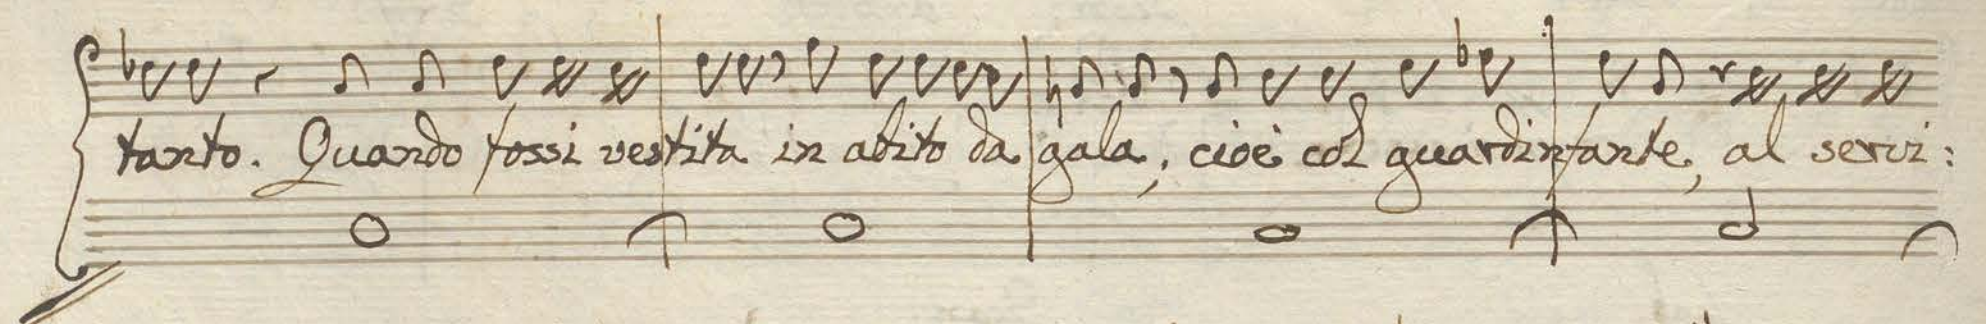 tanto. Quando fossi vestita in abito da gala, cioè col guardinfante, al servi: